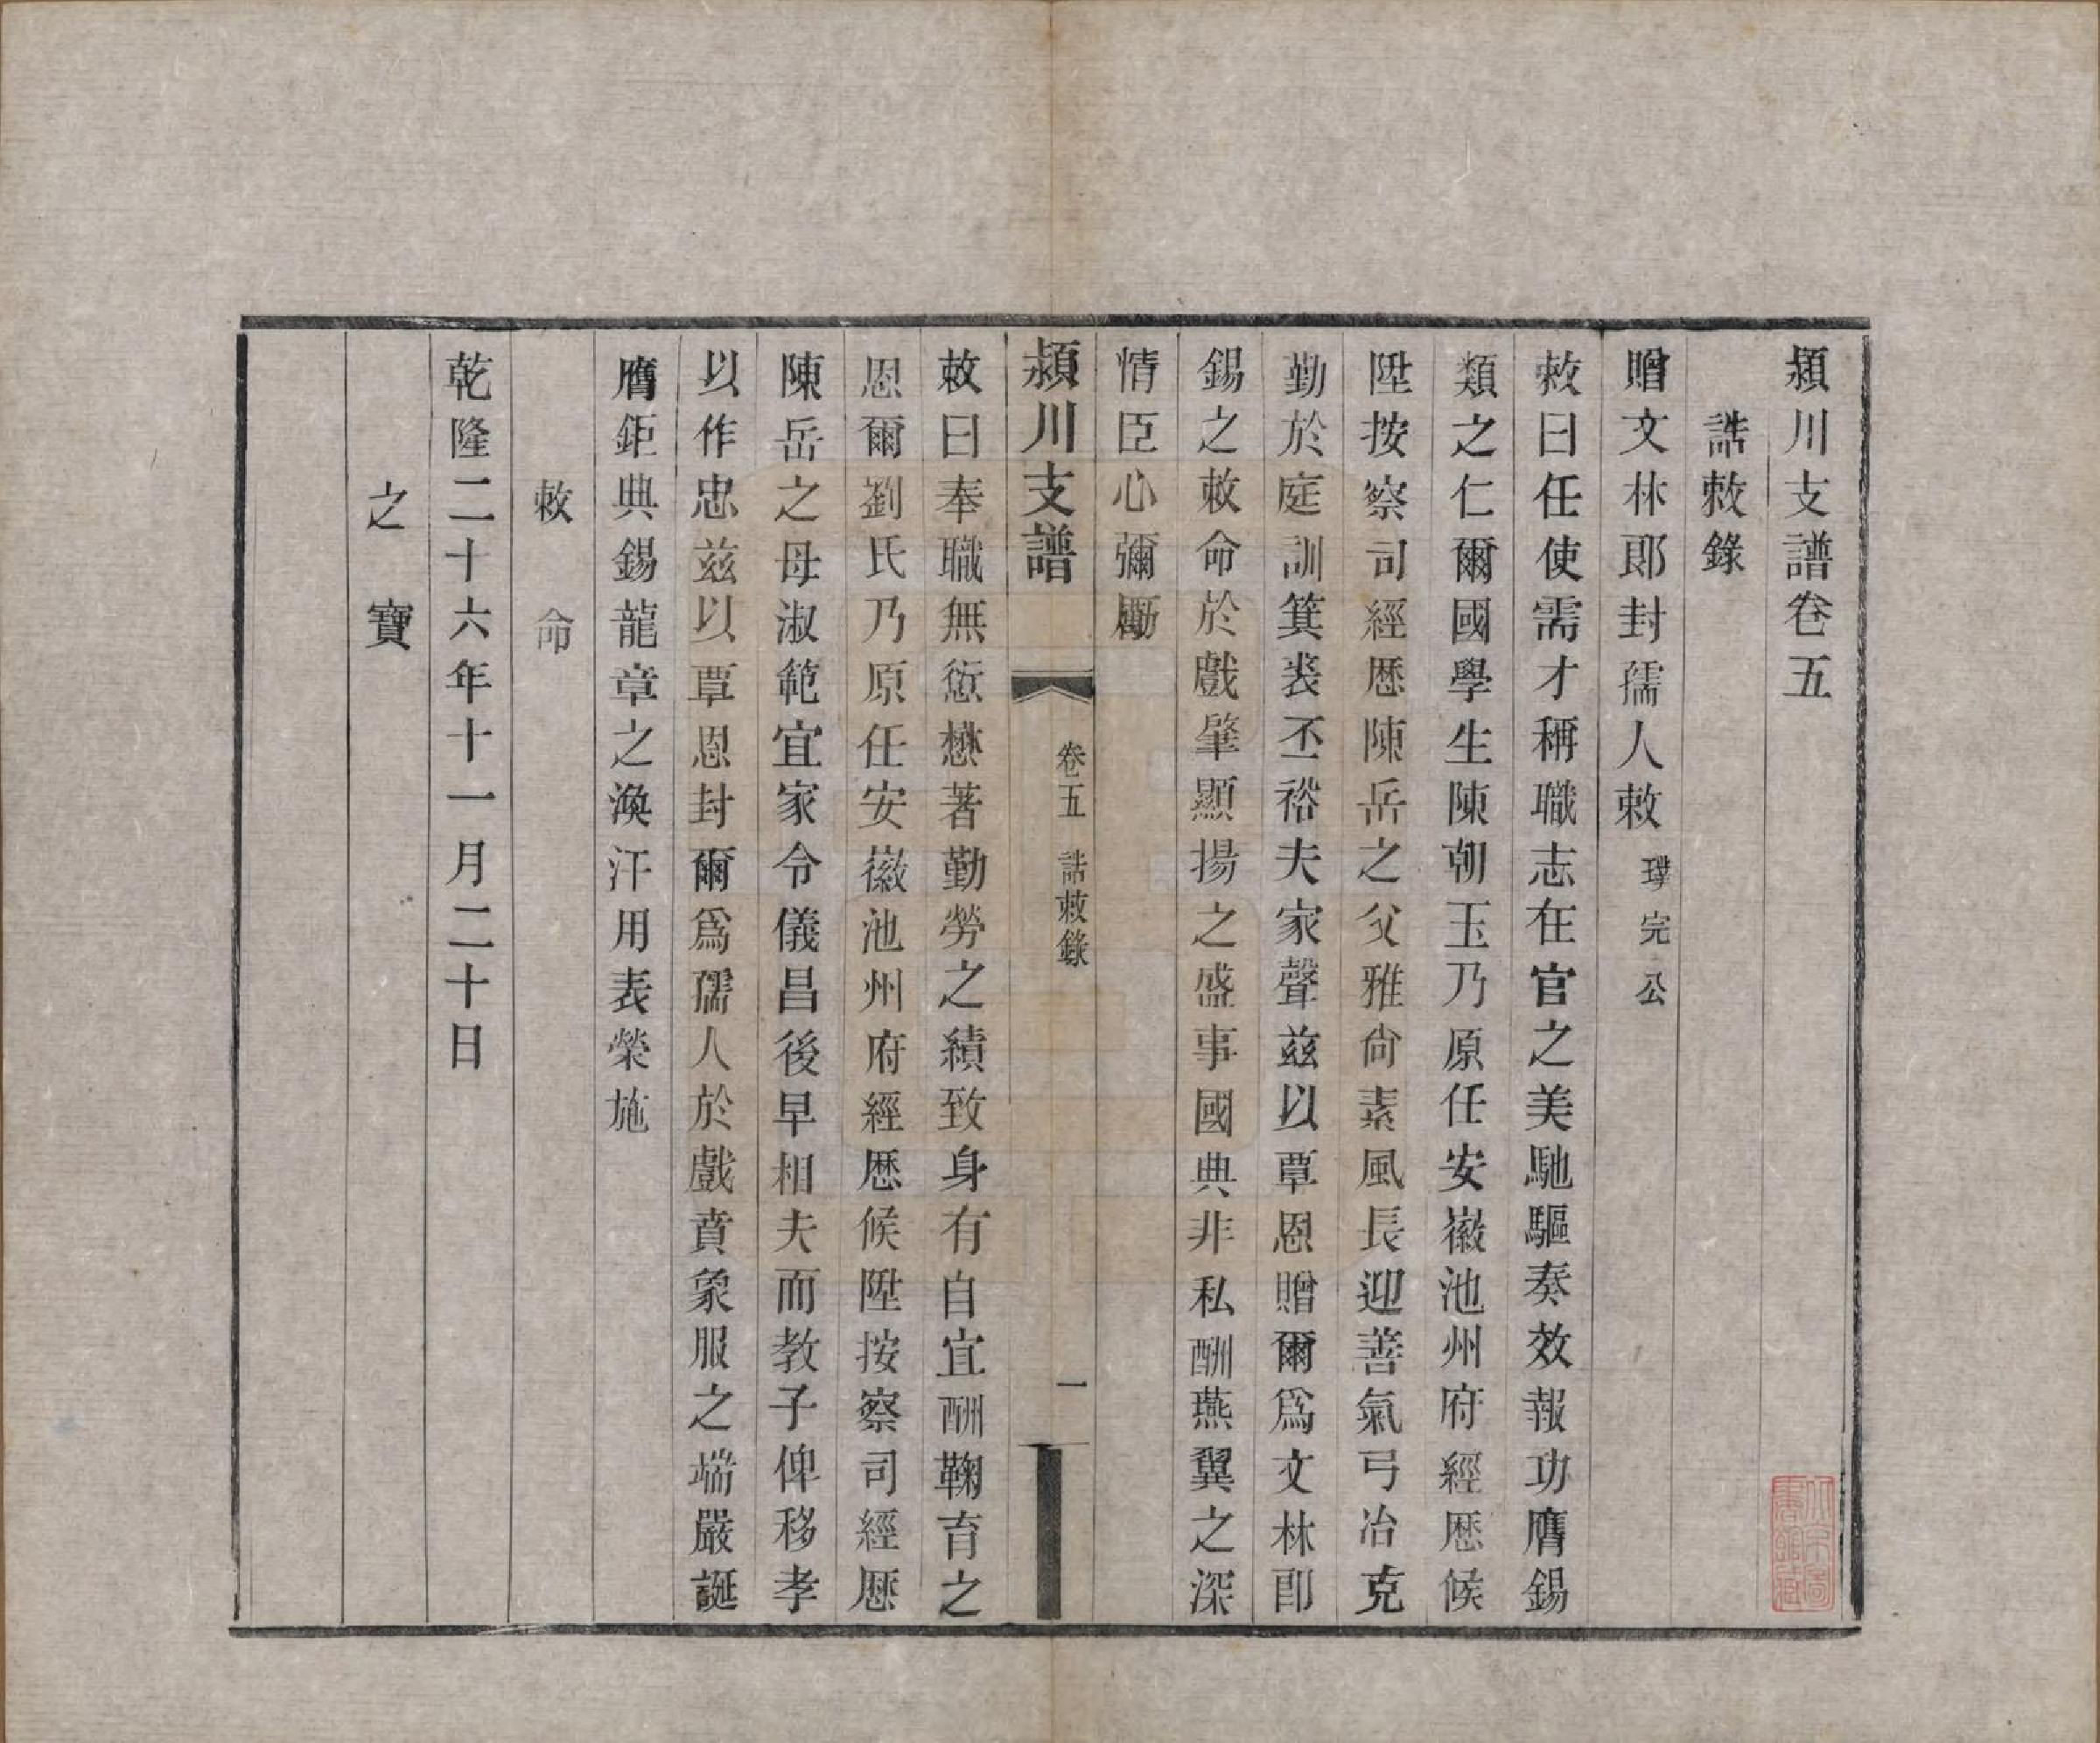 潁川支譜卷五
誥敕錄
贈文林郎封孺人敕 璞完公
敕曰任使需才稱職志在官之美馳驅奏效報功膺錫
類之仁爾國學生陳朝玉乃原任安徽池州府經歷候
陞按察司經歷陳岳之父雅尙素風長迎善氣弓冶克
勤於庭訓箕裘丕裕夫家聲茲以覃恩贈爾爲文林郎
錫之敕命於戲肇顯揚之盛事國典非私酬燕翼之深
情臣心彌勵
潁川支譜 卷五 誥敕錄 一
敕曰奉職無愆懋著勤勞之績致身有自宜酬鞠育之
恩爾劉氏乃原任安徽池州府經歷候陞按察司經歷
陳岳之母淑範宜家令儀昌後早相夫而教子俾移孝
以作忠茲以覃恩封爾爲孺人於戲賁象服之端嚴誕
膺鉅典錫龍章之渙汗用表榮施
敕命
乾隆二十六年十一月二十日
之寶